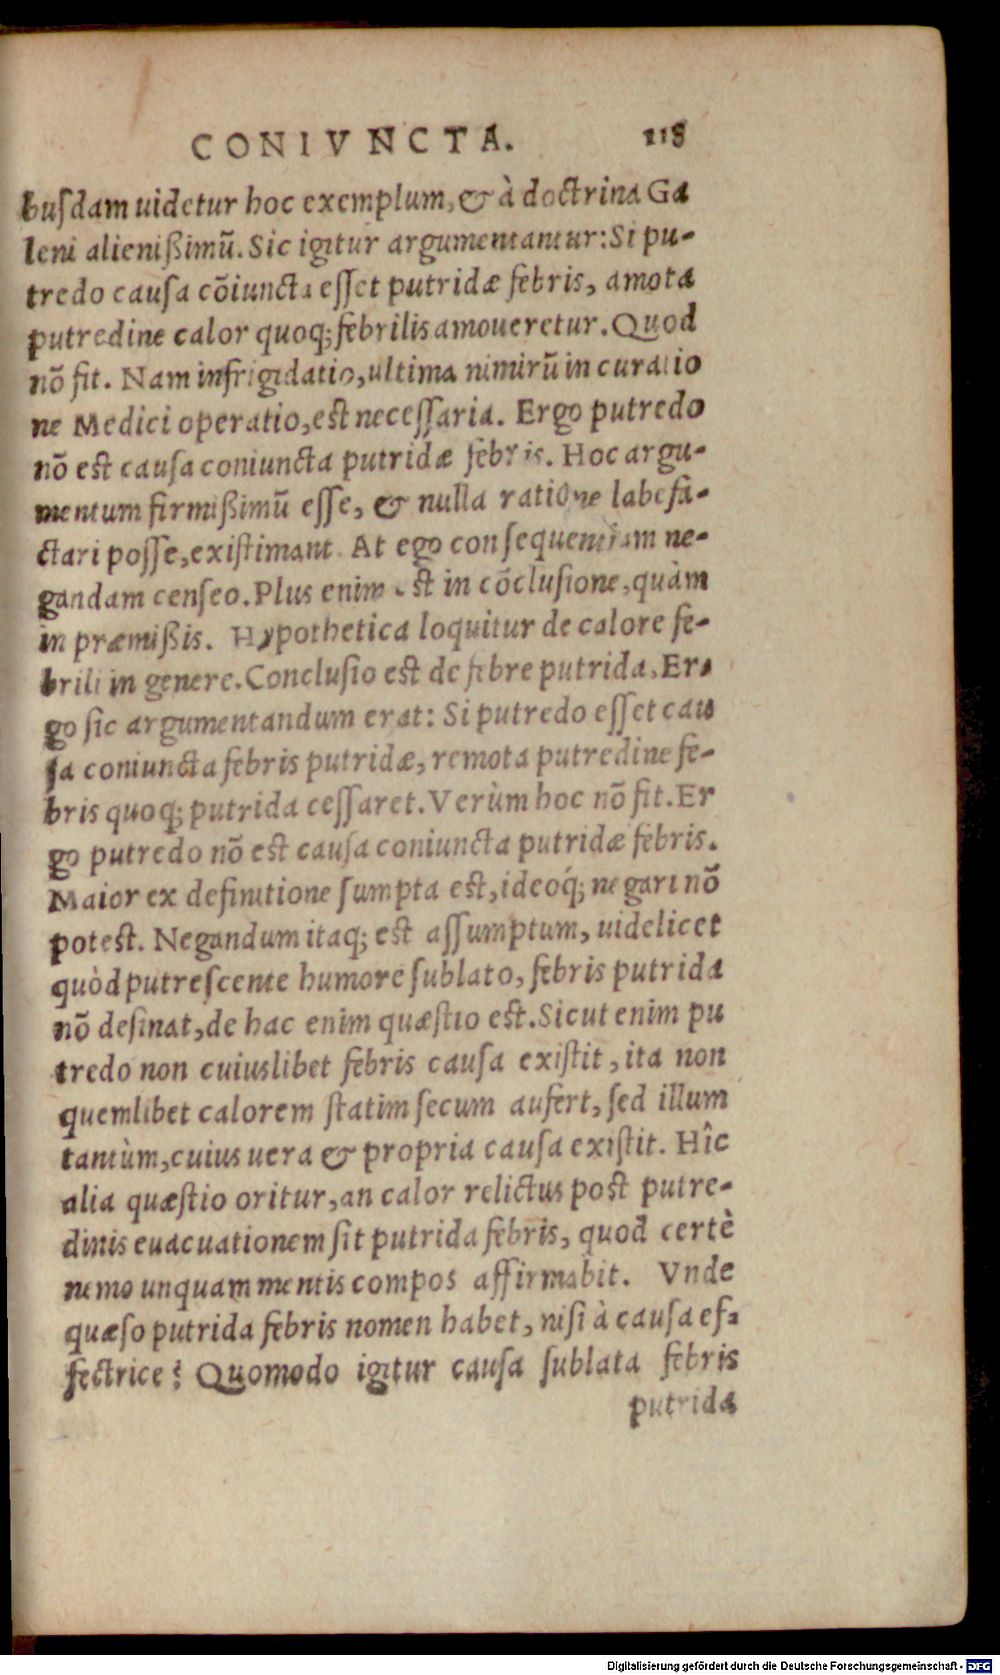 CONIVNCTA. 118
busdam uidetur hoc exemplum, & à doctrina Ga
leni alienißimũ. Sic igitur argumentantur: Si pu-
tredo causa cõiuncta esset putridæ febris, amota
putredine calor quoq; febrilis amoueretur. Quod
nõ fit. Nam infrigidatio, ultima nimirũ in curatio
ne Medici operatio, est necessaria. Ergo putredo
nõ est causa coniuncta putridæ febris. Hoc argu-
mentum firmißimũ esse, & nulla ratione labefa-
ctari posse, existimant. At ego consequentiam ne-
gandam censeo. Plus enim est in cõclusione, quàm
in præmißis. Hypothetica loquitur de calore fe-
brili in genere. Conclusio est de febre putrida, Er-
go sic argumentandum erat: Si putredo esset cau
sa coniuncta febris putridæ, remota putredine fe-
bris quoq; putrida cessaret. Verùm hoc nõ fit. Er
go putredo nõ est causa coniuncta putridæ febris.
Maior ex definitione sumpta est, ideoq́; negari nõ
potest. Negandum itaq; est assumptum, uidelicet
quòd putrescente humore sublato, febris putrida
nõ desinat, de hac enim quæstio est. Sicut enim pu
tredo non cuiuslibet febris causa existit, ita non
quemlibet calorem statim secum aufert, sed illum
tantùm, cuius uera & propria causa existit. Hîc
alia quæstio oritur, an calor relictus post putre-
dinis euacuationem sit putrida febris, quod certè
nemo unquam mentis compos affirmabit. Vnde
quæso putrida febris nomen habet, nisi à causa ef-
fectrice? Quomodo igitur causa sublata febris
putrida
Digitalisierung gefördert durch die Deutsche Forschungsgemeinschaft - DFG